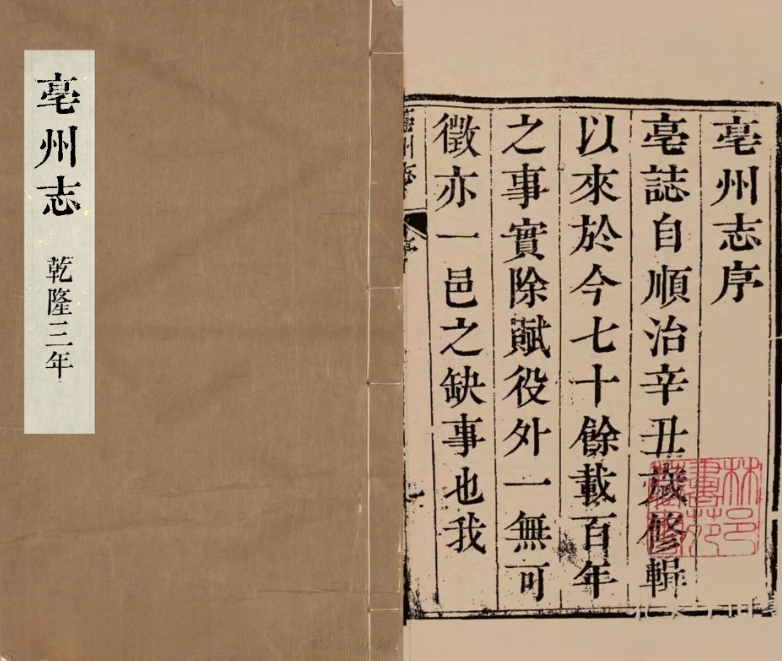 亳州志
乾隆三年
亳州志序
亳誌自順治辛丑歲修輯
以來於今七十餘載百年
之事實除賦役外一無可
徵亦一邑之缺事也我
亳州志
序